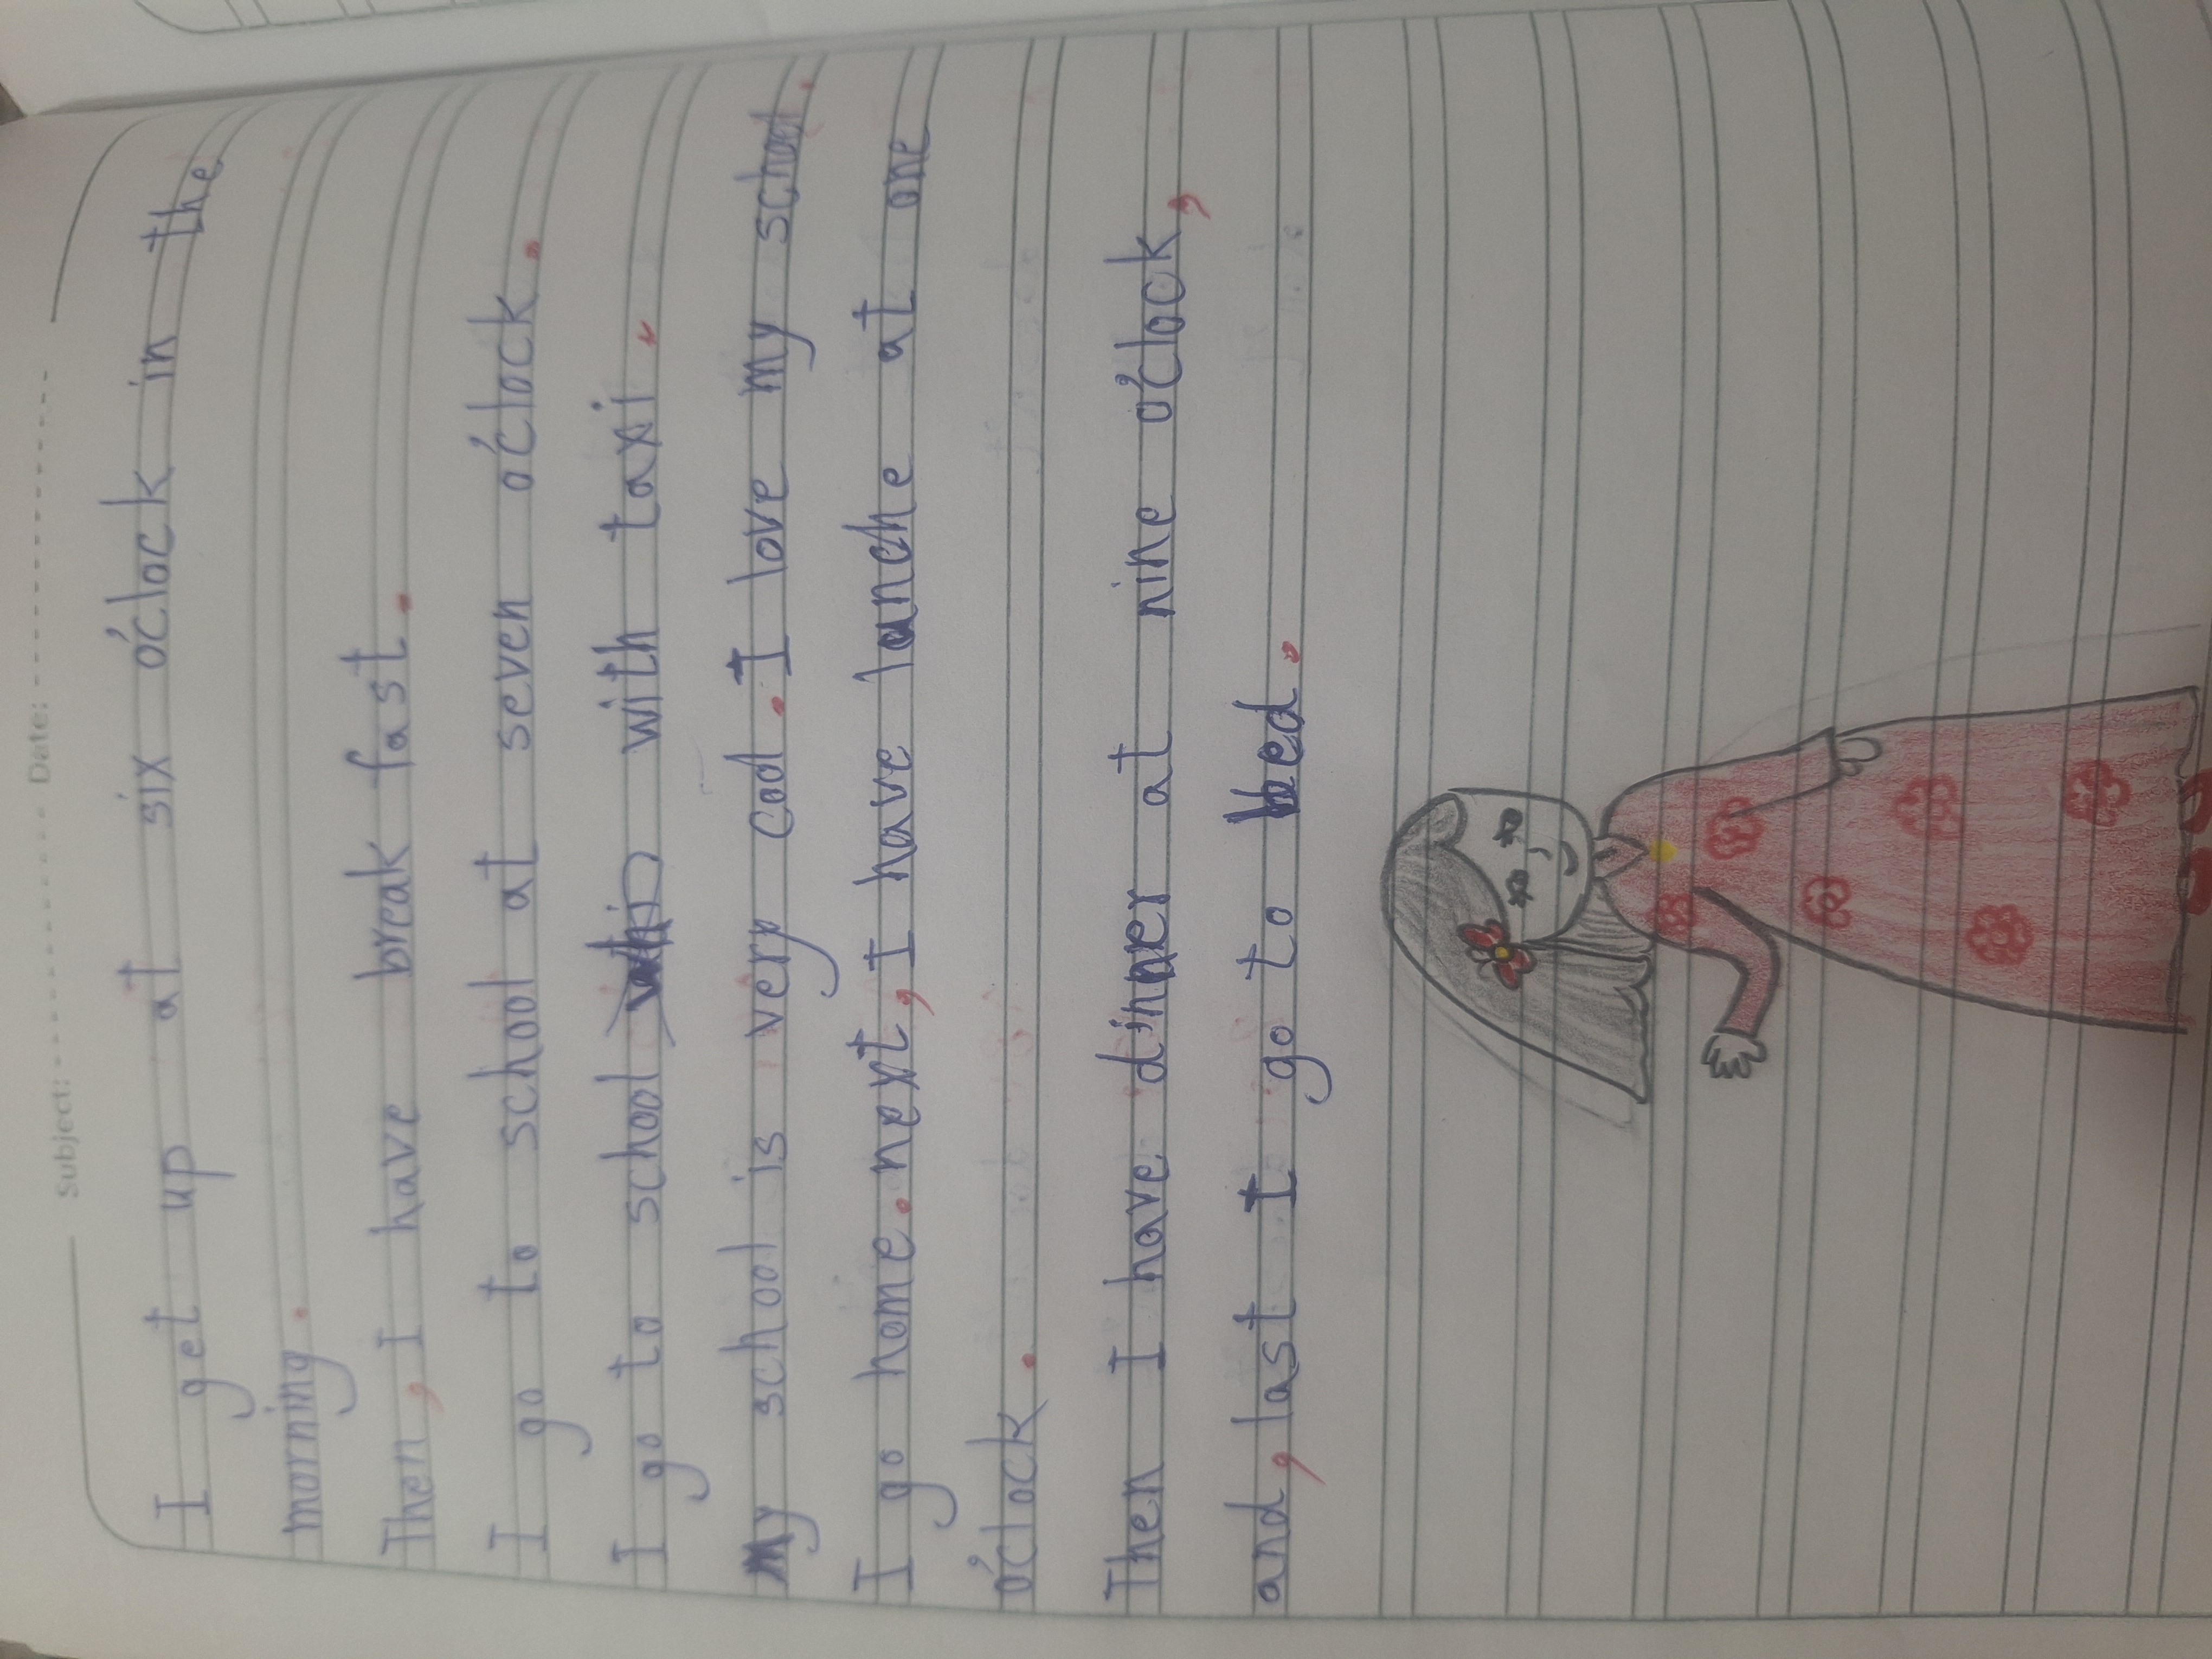 Subject: Date:
I get up at six o'clock in the
morning.
Then, I have break fast.
I go to school at seven o'clock.
I go to school with taxi.
My school is very cool. I love my school.
I go home. next, I have lanche at one
o'clock.
Then I have dinner at nine o'clock,
and, last I go to bed.